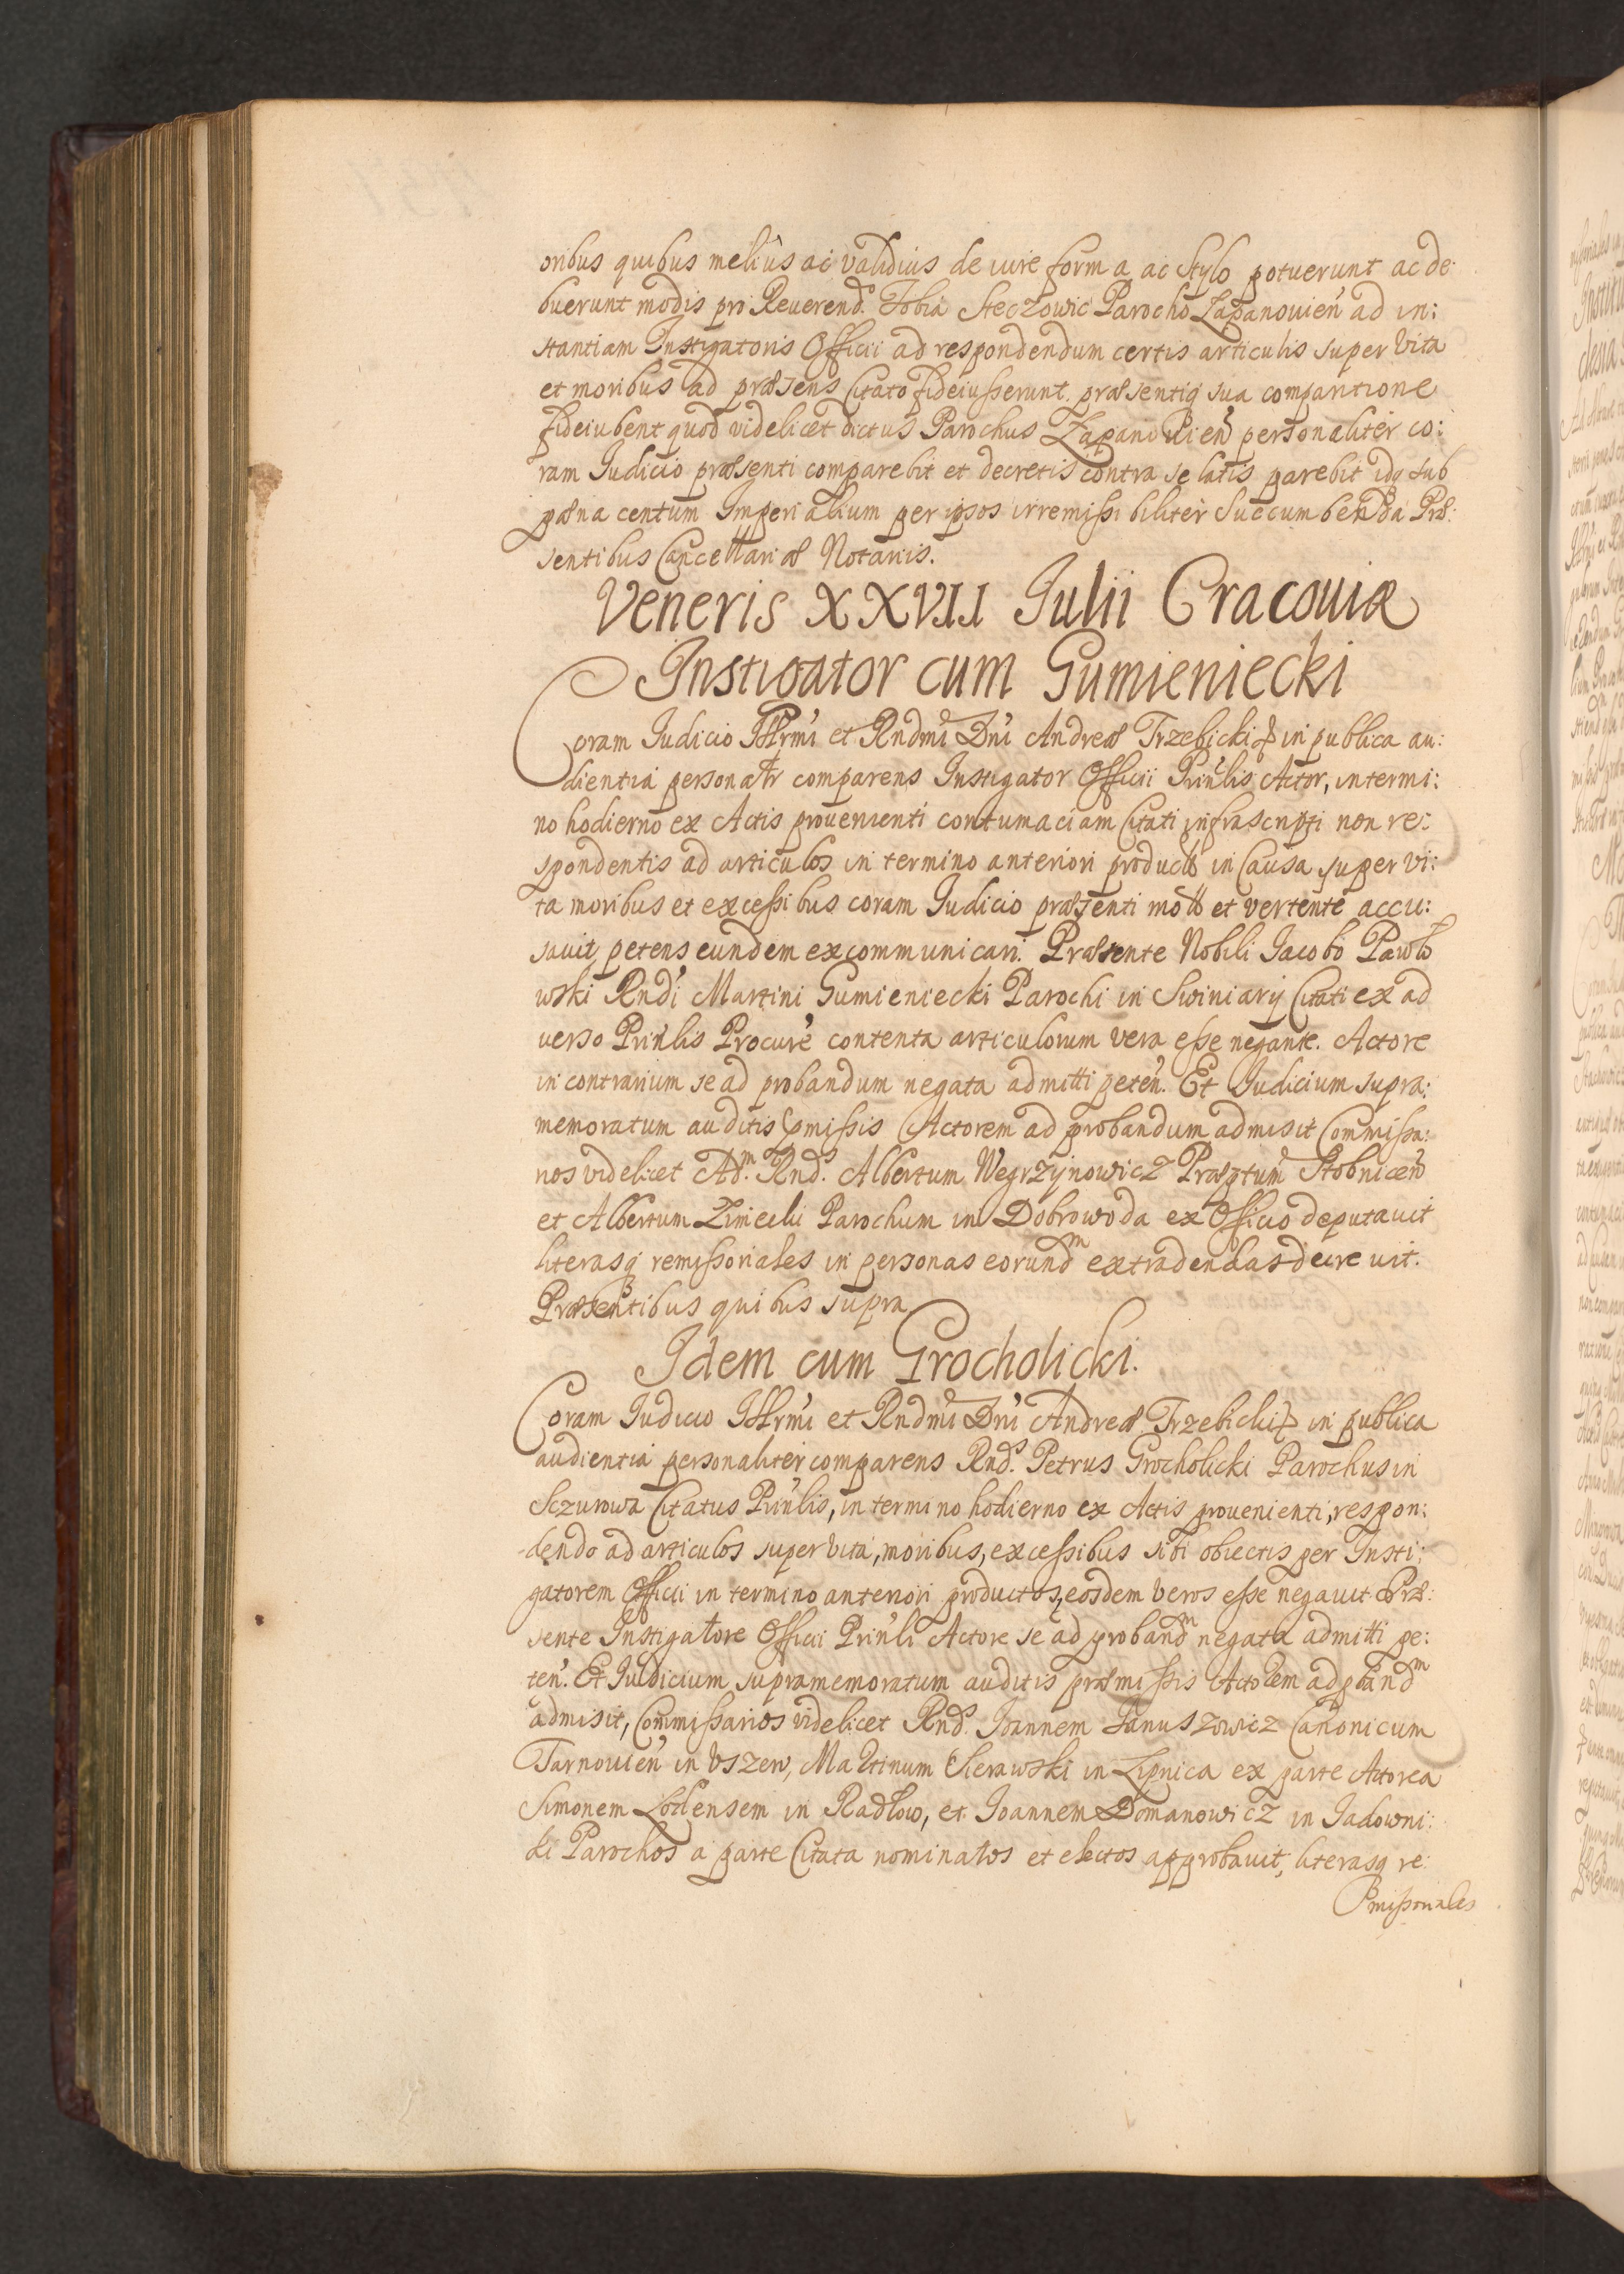 oribus quibus melius ac validius de iure forma ac Stylo potuerunt ac de:
buerunt modis pro Reverend. Tobia Steczowic Parocho Lapanouien̄ ad in:
stantiam Instigatoris Officii ad respondendum certis articulis super Vita
et moribus ad præsens Citato fideiusserunt præsentiq sua comparitione
fideiubent quod videlicet dictus Parochus Lapanivien̄ personaliter co:
ram Iudicio præsenti comparebit et decretis contra se latis parebit idq sub
pæna centum Imperialium per ipsos irremissibiliter Succumbenda Præ:
sentibus Cancellariæ Notariis.
Veneris XXVII Iulii Cracouiæ
Instigator cum Gumieniecki
Coram Iudicio Illrmi et Rndmi Dni Andreæ Trzebicki in publica au:
dientia personalr comparens Instigator Officii Prinlis Actor, in termi:
no hodierno ex Actis prouenienti contumaciam Citati infrascripti non re:
spondentis ad articulos in termino anteriori in Causa super vi:
ta moribus et excessibus coram Iudicio præsenti et vertente accu:
sauit petens eundem excommunicari. Præsente Nobili Iacobo Pawlo
wski Rndi Martini Gumieniecki Parochi in Swiniary Citati ex ad
uerso Prinlis Procure contenta articulorum vera esse negante. Actore
in contrarium se ad probandum negata admitti peten̄. Et Iudicium supra:
memoratum auditis pmissis Actorem ad probandum admisit Commissa:
rios videlicet Ad.m Rnd. Albertum Wegrzynowicz Præptum Stobnicen̄
et Albertum Parochum in Dobrowoda ex Officio deputauit
literasq remissoriales in personas eorund.m extradendas decreuit.
Præsentibus quibus supra
Idem cum Grocholicki.
Coram Iudicio Illrmi et Rndmi Dni Andreæ Trzebicki in publica
audientia personaliter comparens Rnd.s Petrus Grocholicki Parochus in
Sczurowa Citatus Prinlis, in termino hodierno ex Actis prouenienti, respon:
dendo ad articulos super vita, moribus, excessibus sibi obiectis per Insti:
gatorem Officii in termino anteriori productos, eosdem veros esse negauit Præ:
sente Instigatore Officii Prinli Actore se ad proband.m negata admitti pe:
ten̄. Et Iudicium supramemoratum auditis præmissis Actorem ad pband.m
admisit, Commissarios videlicet Rnd. Ioannem Ianuszowicz Canonicum
Tarnouien̄ in Uszew, Martinum Sierawski in Lipnica ex parte Actorea
Simonem in Radlow, et Ioannem Domanowicz in Iadowni:
ki Parochos a parte Citata nominatos et electos approbauit, literasq re:
missoriales